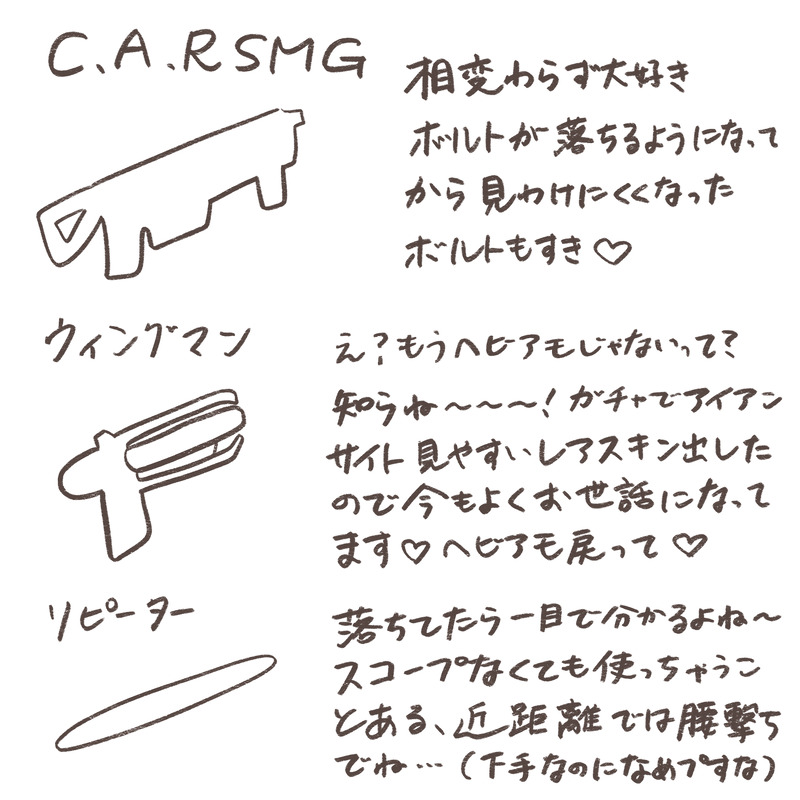 C.A.R SMG
相変わらず大好き
ボルトが落ちるようになって
から見わけにくくなった
ボルトもすき♡
ウィングマン
え?もうヘビアモじゃないって?
知らね〜〜〜!ガチャでアイアン
サイト見やすいレアスキン出した
ので今もよくお世話になって
ます♡ヘビアモ戻って♡
リピーター
落ちてたら一目で分かるよね〜
スコープなくても使っちゃうこ
とある、近距離では腰撃ち
でね…(下手なのになめプすな)